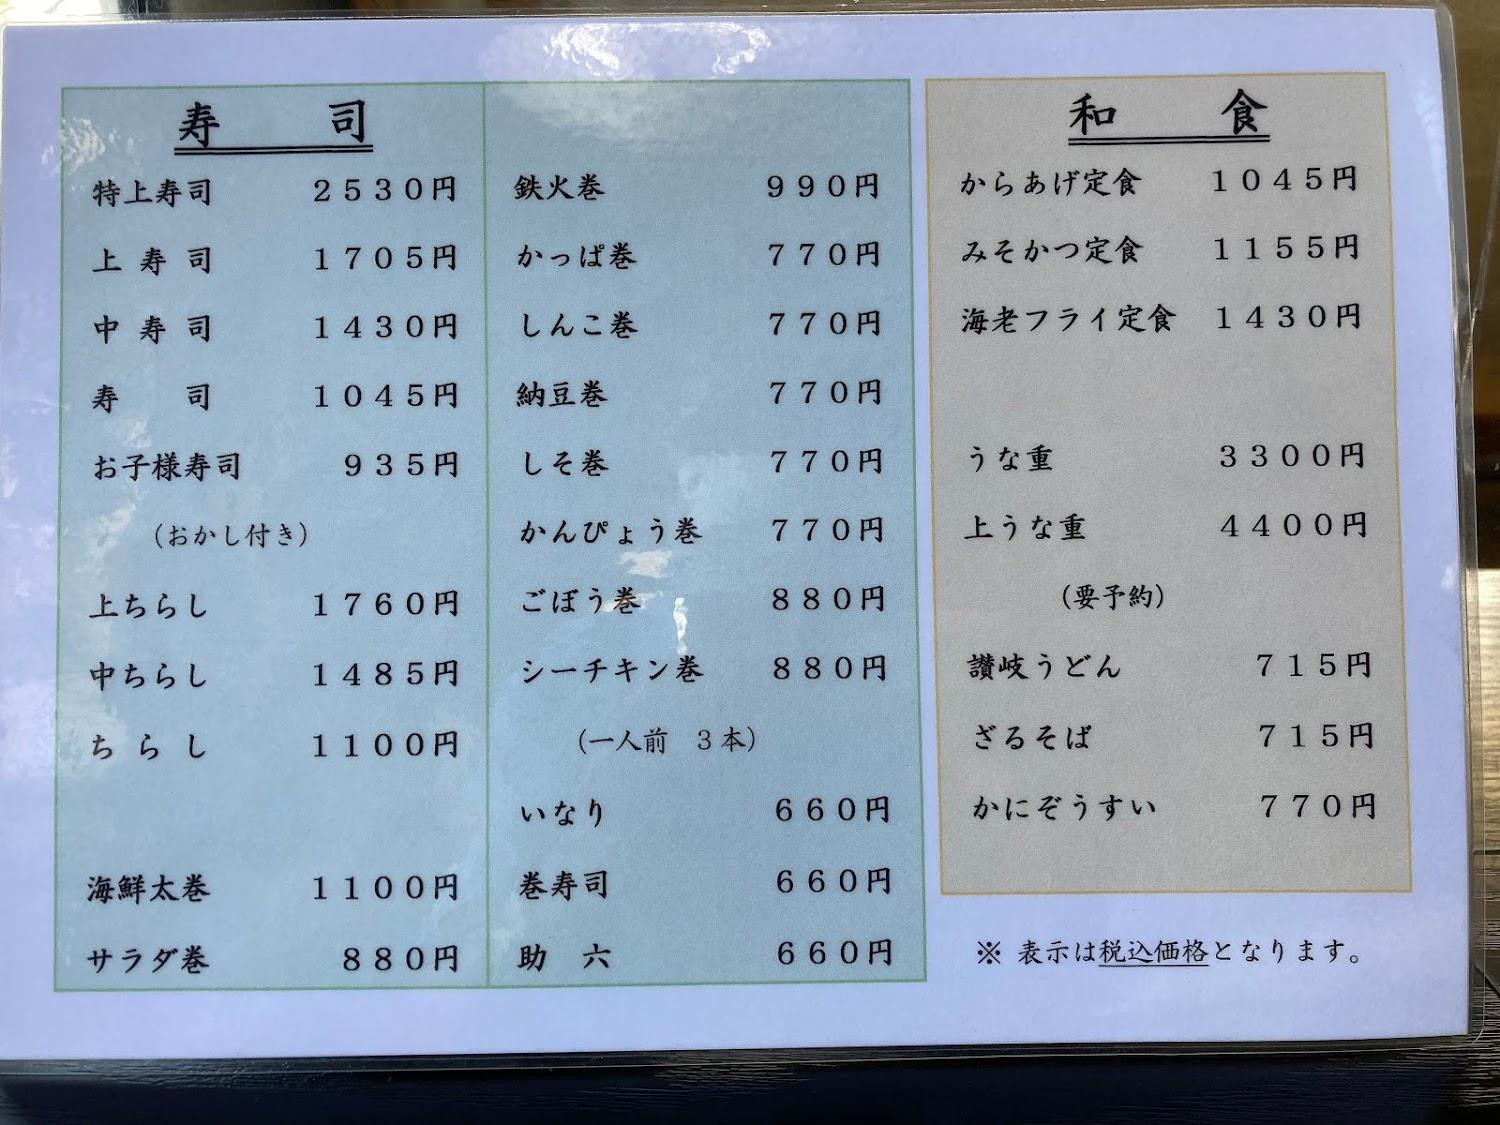 寿　司
特上寿司　２５３０円
上寿司　１７０５円
中寿司　１４３０円
寿　司　１０４５円
お子様寿司　９３５円
（おかし付き）
上ちらし　１７６０円
中ちらし　１４８５円
ちらし　１１００円
海鮮太巻　１１００円
サラダ巻　８８０円
鉄火巻　９９０円
かっぱ巻　７７０円
しんこ巻　７７０円
納豆巻　７７０円
しそ巻　７７０円
かんぴょう巻　７７０円
ごぼう巻　８８０円
シーチキン巻　８８０円
（一人前　３本）
いなり　６６０円
巻寿司　６６０円
助　六　６６０円
和　食
からあげ定食　１０４５円
みそかつ定食　１１５５円
海老フライ定食　１４３０円
うな重　３３００円
上うな重　４４００円
（要予約）
讃岐うどん　７１５円
ざるそば　７１５円
かにぞうすい　７７０円
※ 表示は税込価格となります。